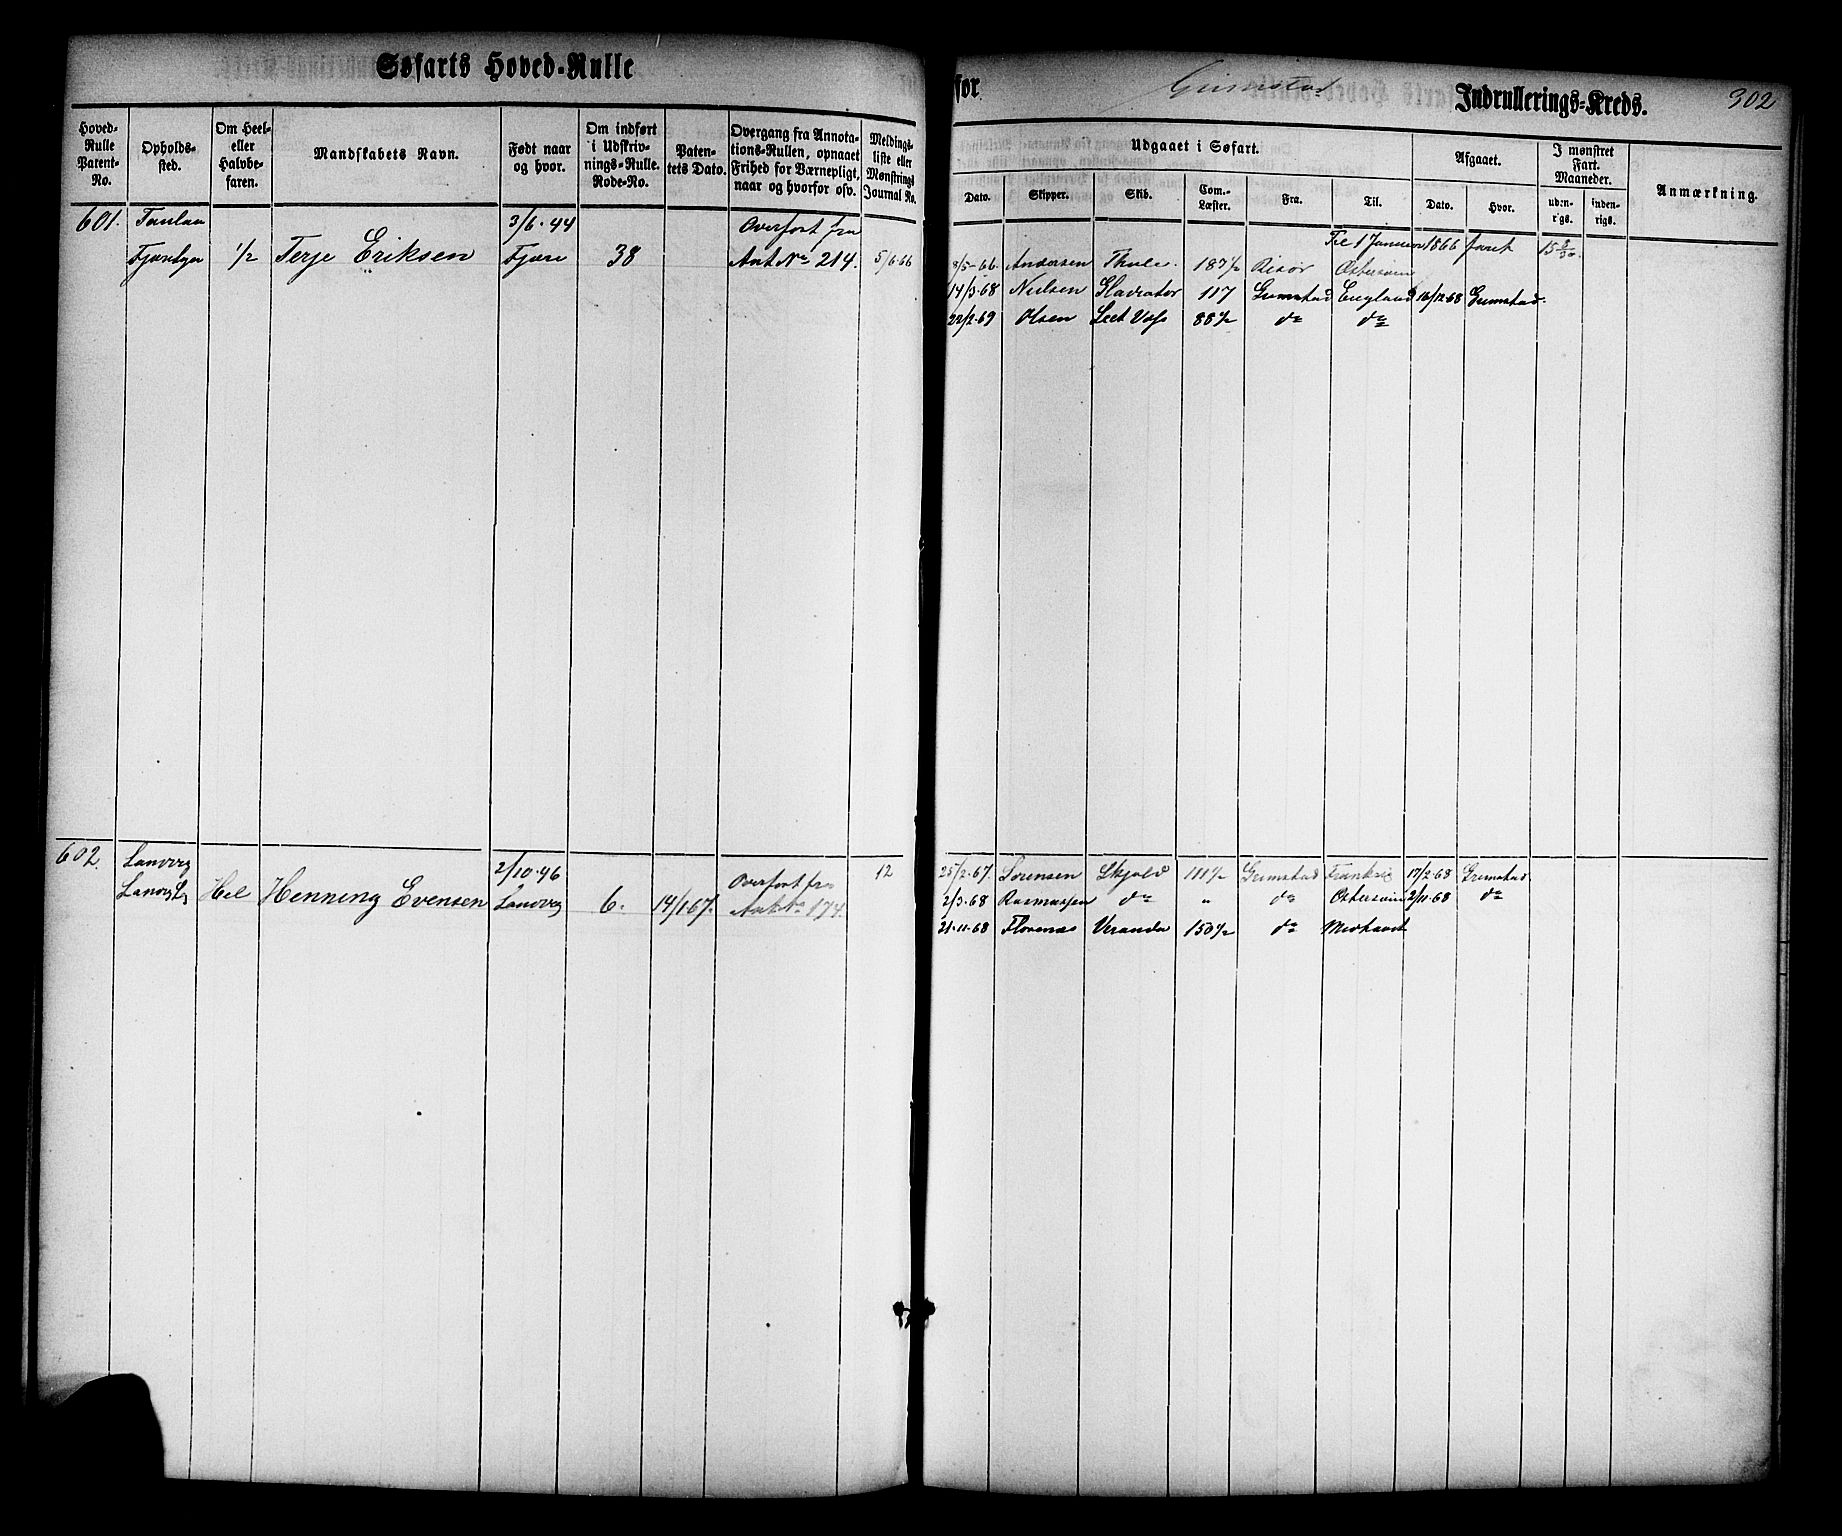 Søfarts Hoved-Rulle
for Grimstad Indrullerings-Kreds. 302
Hoved-Rulle Patent-No.
Opholds-sted.
Om Heel- eller Halvbe-faren.
Mandskabets Navn.
Født naar og hvor.
Om indført i Udskriv-nings-Rulle. Rode-No.
Paten-tets Dato.
Overgang fra Annota-tions-Rullen, opnaaet Frihed for Værnepligt, naar og hvorfor osv.
Meldings-liste eller Mønstrings Journal No.
Udgaaet i Søfart.
Afgaaet.
I mønstret Fart. Maaneder.
Anmærkning.
Dato. Skipper. Skib. Com.-Læster. Fra. Til. Dato. Hvor. uden-rigs. inden-rigs.
601. 3/6.44 Overført fra
1/2 Terje Eriksen Fjære 38 Ant No 214. 5/6.66
Til 1 Januar 1866 faret 15
8/5-66 Andersen Thule 187 1/2 Risør Østersøen
14/3.68 Nielsen Gladiator 117 Grimstad England 16/12.68 Grimstad.
22/2.69 Olsen 88 1/2 do do
602. Landvig 2/10.46 Overført fra 12
Hel Henning Evensen Landvig 6. 14/1.67. Ant No 174.
25/2.67. Sørensen Skjold 111 1/2 Grimstad Frankrig 17/2.68 Grimstad
2/3.68 Rasmussen do " do Østersøen 2/11.68 do
21.11.68 Veranda 150 1/2 do Midhavet